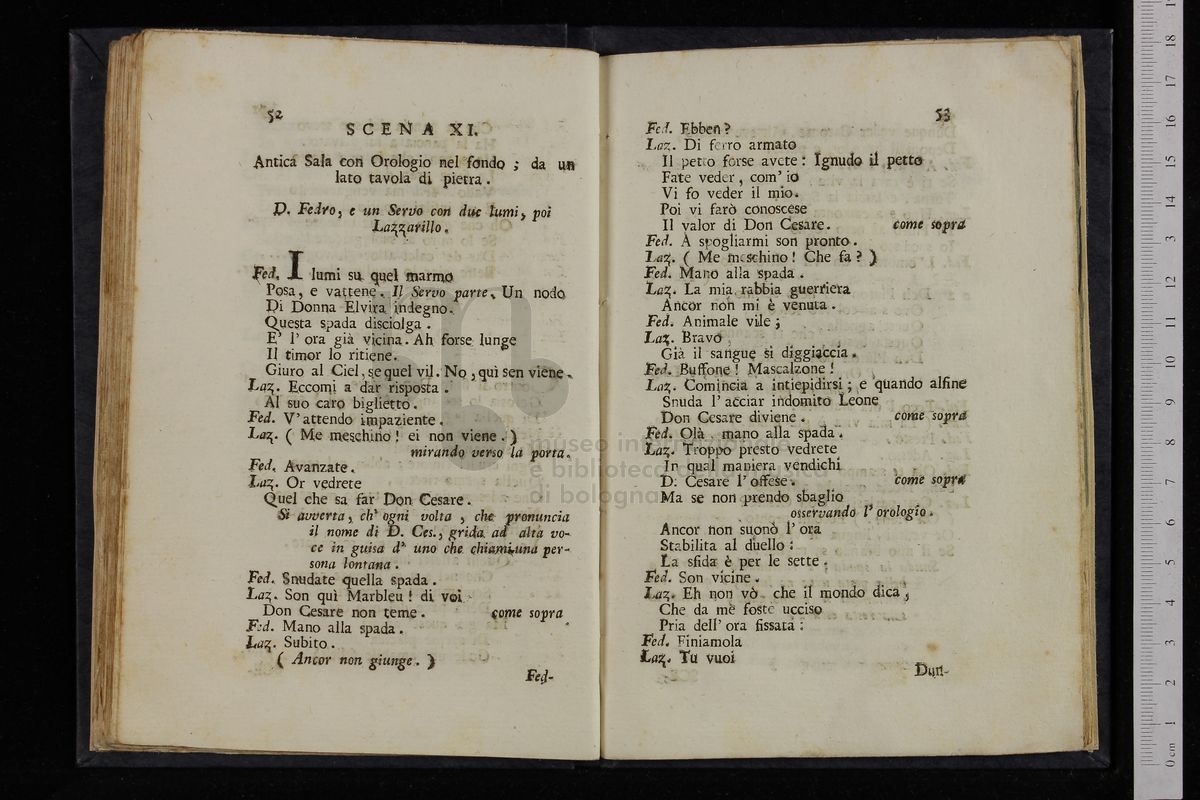 52
SCENA XI.
Antica Sala con Orologio nel fondo ; da un
lato tavola di pietra .
D. Fedro, e un Servo con due lumi, poi
Lazzarillo .
Fed. I lumi su quel marmo
Posa, e vattene . Il Servo parte. Un nodo
Di Donna Elvira indegno.
Questa spada disciolga .
E' l' ora già vicina. Ah forse lunge
Il timor lo ritiene.
Giuro al Ciel, se quel vil. No, quì sen viene.
Laz. Eccomi a dar risposta .
Al suo caro biglietto.
Fed. V' attendo impaziente .
Laz. ( Me meschino ! ei non viene . )
mirando verso la porta.
Fed. Avanzate.
Laz. Or vedrete
Quel che sa far Don Cesare .
Si avverta, ch' ogni volta , che pronuncia
il nome di D. Ces., grida ad alta vo-
ce in guisa d' uno che chiami una per-
sona lontana .
Fed. Snudate quella spada .
Laz. Son quì Marbleu ! di voi
Don Cesare non teme . come sopra
Fed. Mano alla spada .
Laz. Subito .
( Ancor non giunge . )
Fed-
53
Fed. Ebben ?
Laz. Di ferro armato
Il petto forse avete : Ignudo il petto
Fate veder , com' io
Vi fo veder il mio.
Poi vi farò conoscese
Il valor di Don Cesare. come sopra
Fed. A spogliarmi son pronto .
Laz. ( Me meschino ! Che fa ? )
Fed. Mano alla spada .
Laz. La mia rabbia guerriera
Ancor non mi è venuta .
Fed. Animale vile ;
Laz. Bravo
Già il sangue si diggiaccia .
Fed. Buffone ! Mascalzone !
Laz. Comincia a intiepidirsi ; e quando alfine
Snuda l' acciar indomito Leone
Don Cesare diviene . come sopra
Fed. Olà . mano alla spada .
Laz. Troppo presto vedrete
In qual maniera vendichi
D: Cesare l' offese . come sopra
Ma se non prendo sbaglio
osservando l' orologio .
Ancor non suonò l' ora
Stabilita al duello :
La sfida è per le sette .
Fed. Son vicine .
Laz. Eh non vò che il mondo dica ,
Che da mè foste ucciso
Pria dell' ora fissata :
Fed. Finiamola
Laz. Tu vuoi
Dun-
museo internazionale
e biblioteca della musica
di bologna
0 cm 1 2 3 4 5 6 7 8 9 10 11 12 13 14 15 16 17 18